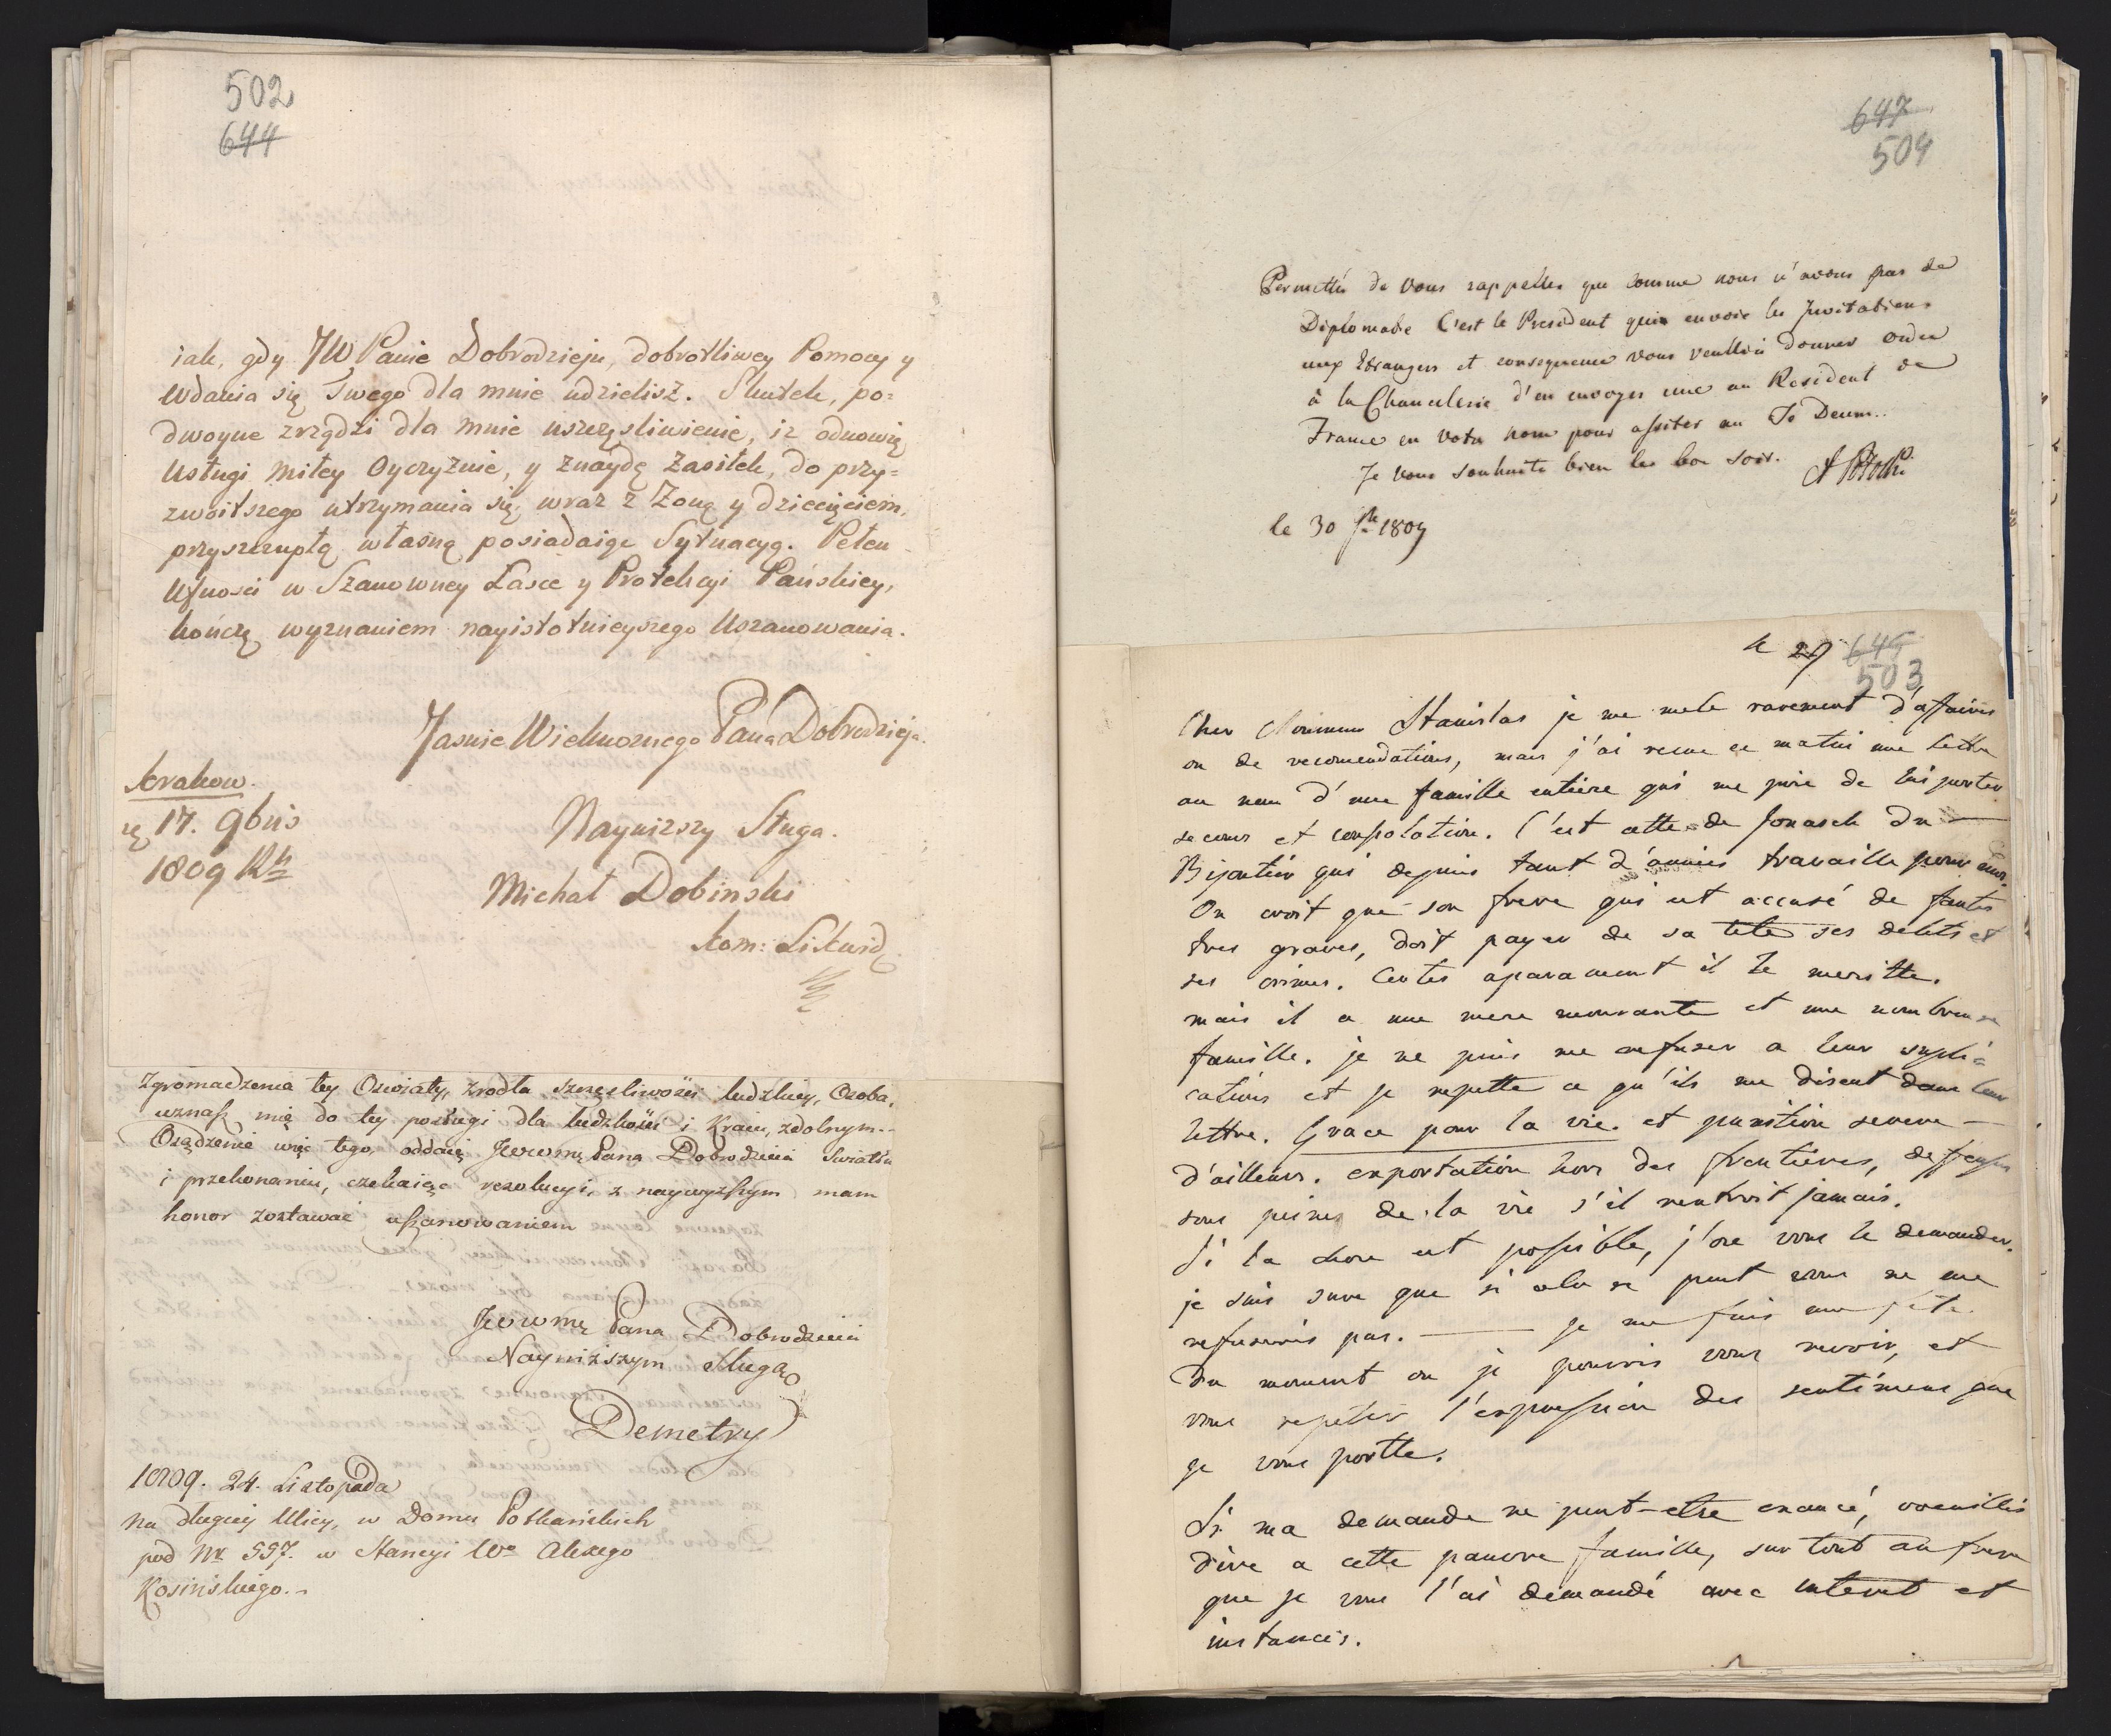 502
644
iak, gdy JW Panie Dobrodzieju, dobrotliwey Pomocy y
Wdania się Twego dla mnie udzielisz. Skutek, po=
dwoyne zrządzi dla mnie uszczęsliwienie, iż odnowię
Usługi miłey Oyczyznie, y znaydę Zasiłek, do przy=
zwoitszego utrzymania się, wraz z Żoną y dziecięciem,
przyszczupłą własną posiadaiąc Sytuacyą. Pełen
Ufnosci w Szanowney Łasce y Protekcyi Pańskiey,
kończę wyznaniem nayistotnieyszego Uszanowania.
Jasnie Wielmoznego Pana Dobrodzieja.
Krakow.
17. 9bris
1809 Rk
Nayniższy Sługa.
Michał Dobinski
Kom: Likwid
Zgromadzenia tey Oswiaty, zrodła szczęsliwości ludzkiey, Osoba,
uznasz mię do tey posługi dla ludzkości i Kraiu, zdolnym..
Osądzenie więc tego, oddaię Jeromę Pana Dobrodzieia Swiatłu
i przekonaniu, czekaiąc rezolucyi, z naywyższym mam
honor zostawać uszanowaniem
Pana Dobrodzieia
Nayniższym Sługą
Demetry
1809. 24. Listopada
na długiey Ulicy, w Domu Potkańskich
pod Nr 557. w Stancyi We Alexego
Kosińskiego.-
647
504
Permettés de vous rappeller que comme nous n'avons pas de
Diplomatie C'est le President qui envoie les Invitations
aux Etrangers et consequence vous veuilliés donner ordre
à la Chancelerie d'en envoyer une au Resident de
France en votre nom pour assister au Te Deum..
Je vous souhaite bien le bon soir. A Potocki
le 30 1809
le 29 645
503
Cher Monsieur Stanislas je me mele rarement d'affaires
ou de recomendations, mais j'ai recue ce matin une lettre
au nom d'une famille entiere qui me prie de lui porter
secour et consolation. C'est cette de Jonasch du
Bijoutier qui depuis tant d'années travaille pour nous.
On croit que son frere qui est accusé de fautes
tres graves, doit payer de sa tete ses delits et
ses crimes. Certes aparament il le meritte.
mais il a une mere mourante et une nombreuse
famille. je ne puis me refuser a leur supli-
cations et je repette ce qu'ils me disent dans leur
lettre. Grace pour la vie. et punition severe —
d'ailleurs. exportation hors des frontieres, defense
sous peines de la vie s'il rentroit jamais.
Si la chose est possible, j'ose vous le demander.
je suis sure que si cela se peut vous ne me
refuserois pas. — je me fais une fete
du moment ou je pourrois vous revoir, et
vous repeter l'expression des sentimens que
je vous portte.
Si ma demande ne peut-etre exaucé, voeuilles
dire a cette pauvre famille, sur tout au frere
que je vous l'ai demandé avec interet et
instances.